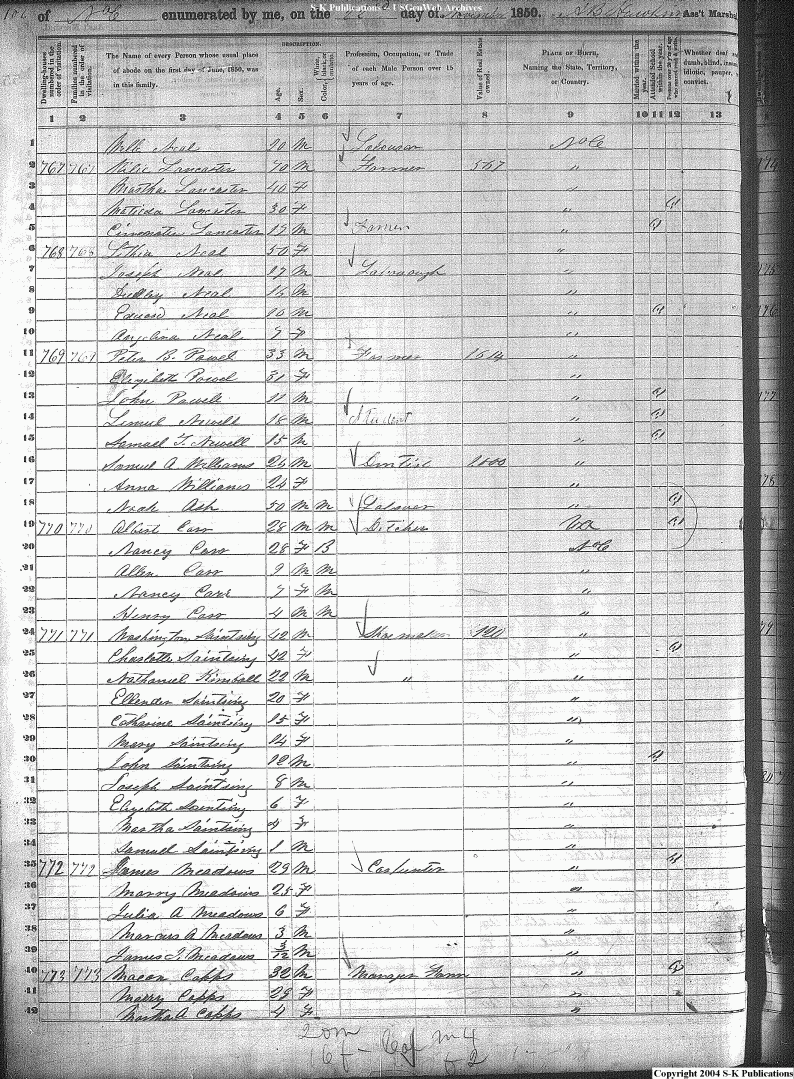 S-K Publications - USGenWeb Archives
of N o C enumerated by me, on the day of November 1850. Ass't Marshal
DESCRIPTION.
Dwelling-houses numbered in the order of visitation.
Families numbered in the order of visitation.
The Name of every Person whose usual place of abode on the first day of June, 1850, was in this family.
Age.
Sex.
Color, White, black, or mulatto.
Profession, Occupation, or Trade of each Male Person over 15 years of age.
Value of Real Estate owned.
PLACE OF BIRTH, Naming the State, Territory, or Country.
Married within the year.
Attended School within the year.
Whether deaf and dumb, blind, insane, idiotic, pauper, or convict.
1 2 3 4 5 6 7 8 9 10 11 12 13
1 Neal 20 M Labourer N o C
2 767 767 Lancaster 70 M Farmer 567 "
3 Martha Lancaster 40 F
4 Matilda Lancaster 30 F "
5 Lancaster 19 M Farmer "
6 768 768 Neal 50 F "
7 Joseph Neal 17 M "
8 Dudley Neal 14 M "
9 Edward Neal 10 M "
10 Angelina Neal 7 F "
11 769 769 Peter B. Powel 33 M Farmer 1514 "
12 Elizibeth Powel 31 F "
13 John Powell 11 M "
14 Lemuel Newell 18 M Student "
15 Samuel T. Newell 15 M "
16 Samuel A Williams 26 M Dentist 1000 "
17 Anna Williams 24 F "
18 Noah Ash 50 M M Labourer "
19 770 770 Albert Carr 28 M M Ditcher Va
20 Nancy Carr 28 F B N o C
21 Allen Carr 9 M M "
22 Nancy Carr 7 F M "
23 Henry Carr 4 M M "
24 771 771 Washington Saintsing 42 M Shoemaker 120 "
25 Charlotte Saintsing 42 F "
26 Nathaniel Kimball 22 M " "
27 Ellender Saintsing 20 F "
28 Catharine Saintsing 15 F "
29 Mary Saintsing 14 F "
30 John Saintsing 12 M "
31 Joseph Saintsing 8 M "
32 Elizibeth Saintsing 6 F "
33 Martha Saintsing 4 F "
34 Samuel Saintsing 1 M "
35 772 772 James Meadows 29 M Carpenter "
36 Marry Meadows 25 F "
37 Julia A Meadows 6 F "
38 Marcus A Meadows 3 M "
39 James T. Meadows 3/12 M "
40 773 773 Macon Capps 32 M Manager Farm "
41 Marry Capps 29 F "
42 Martha A Capps 4 F "
20 m
16 f - Col m 4
f 2
Copyright 2004 S-K Publications